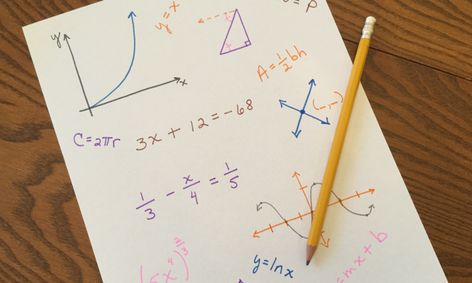 y=x
y
x
A=½bh
C=2πr
3x+12=-68
(-,-)
1/3 - x/4 = 1/5
y=lnx
=mx+b